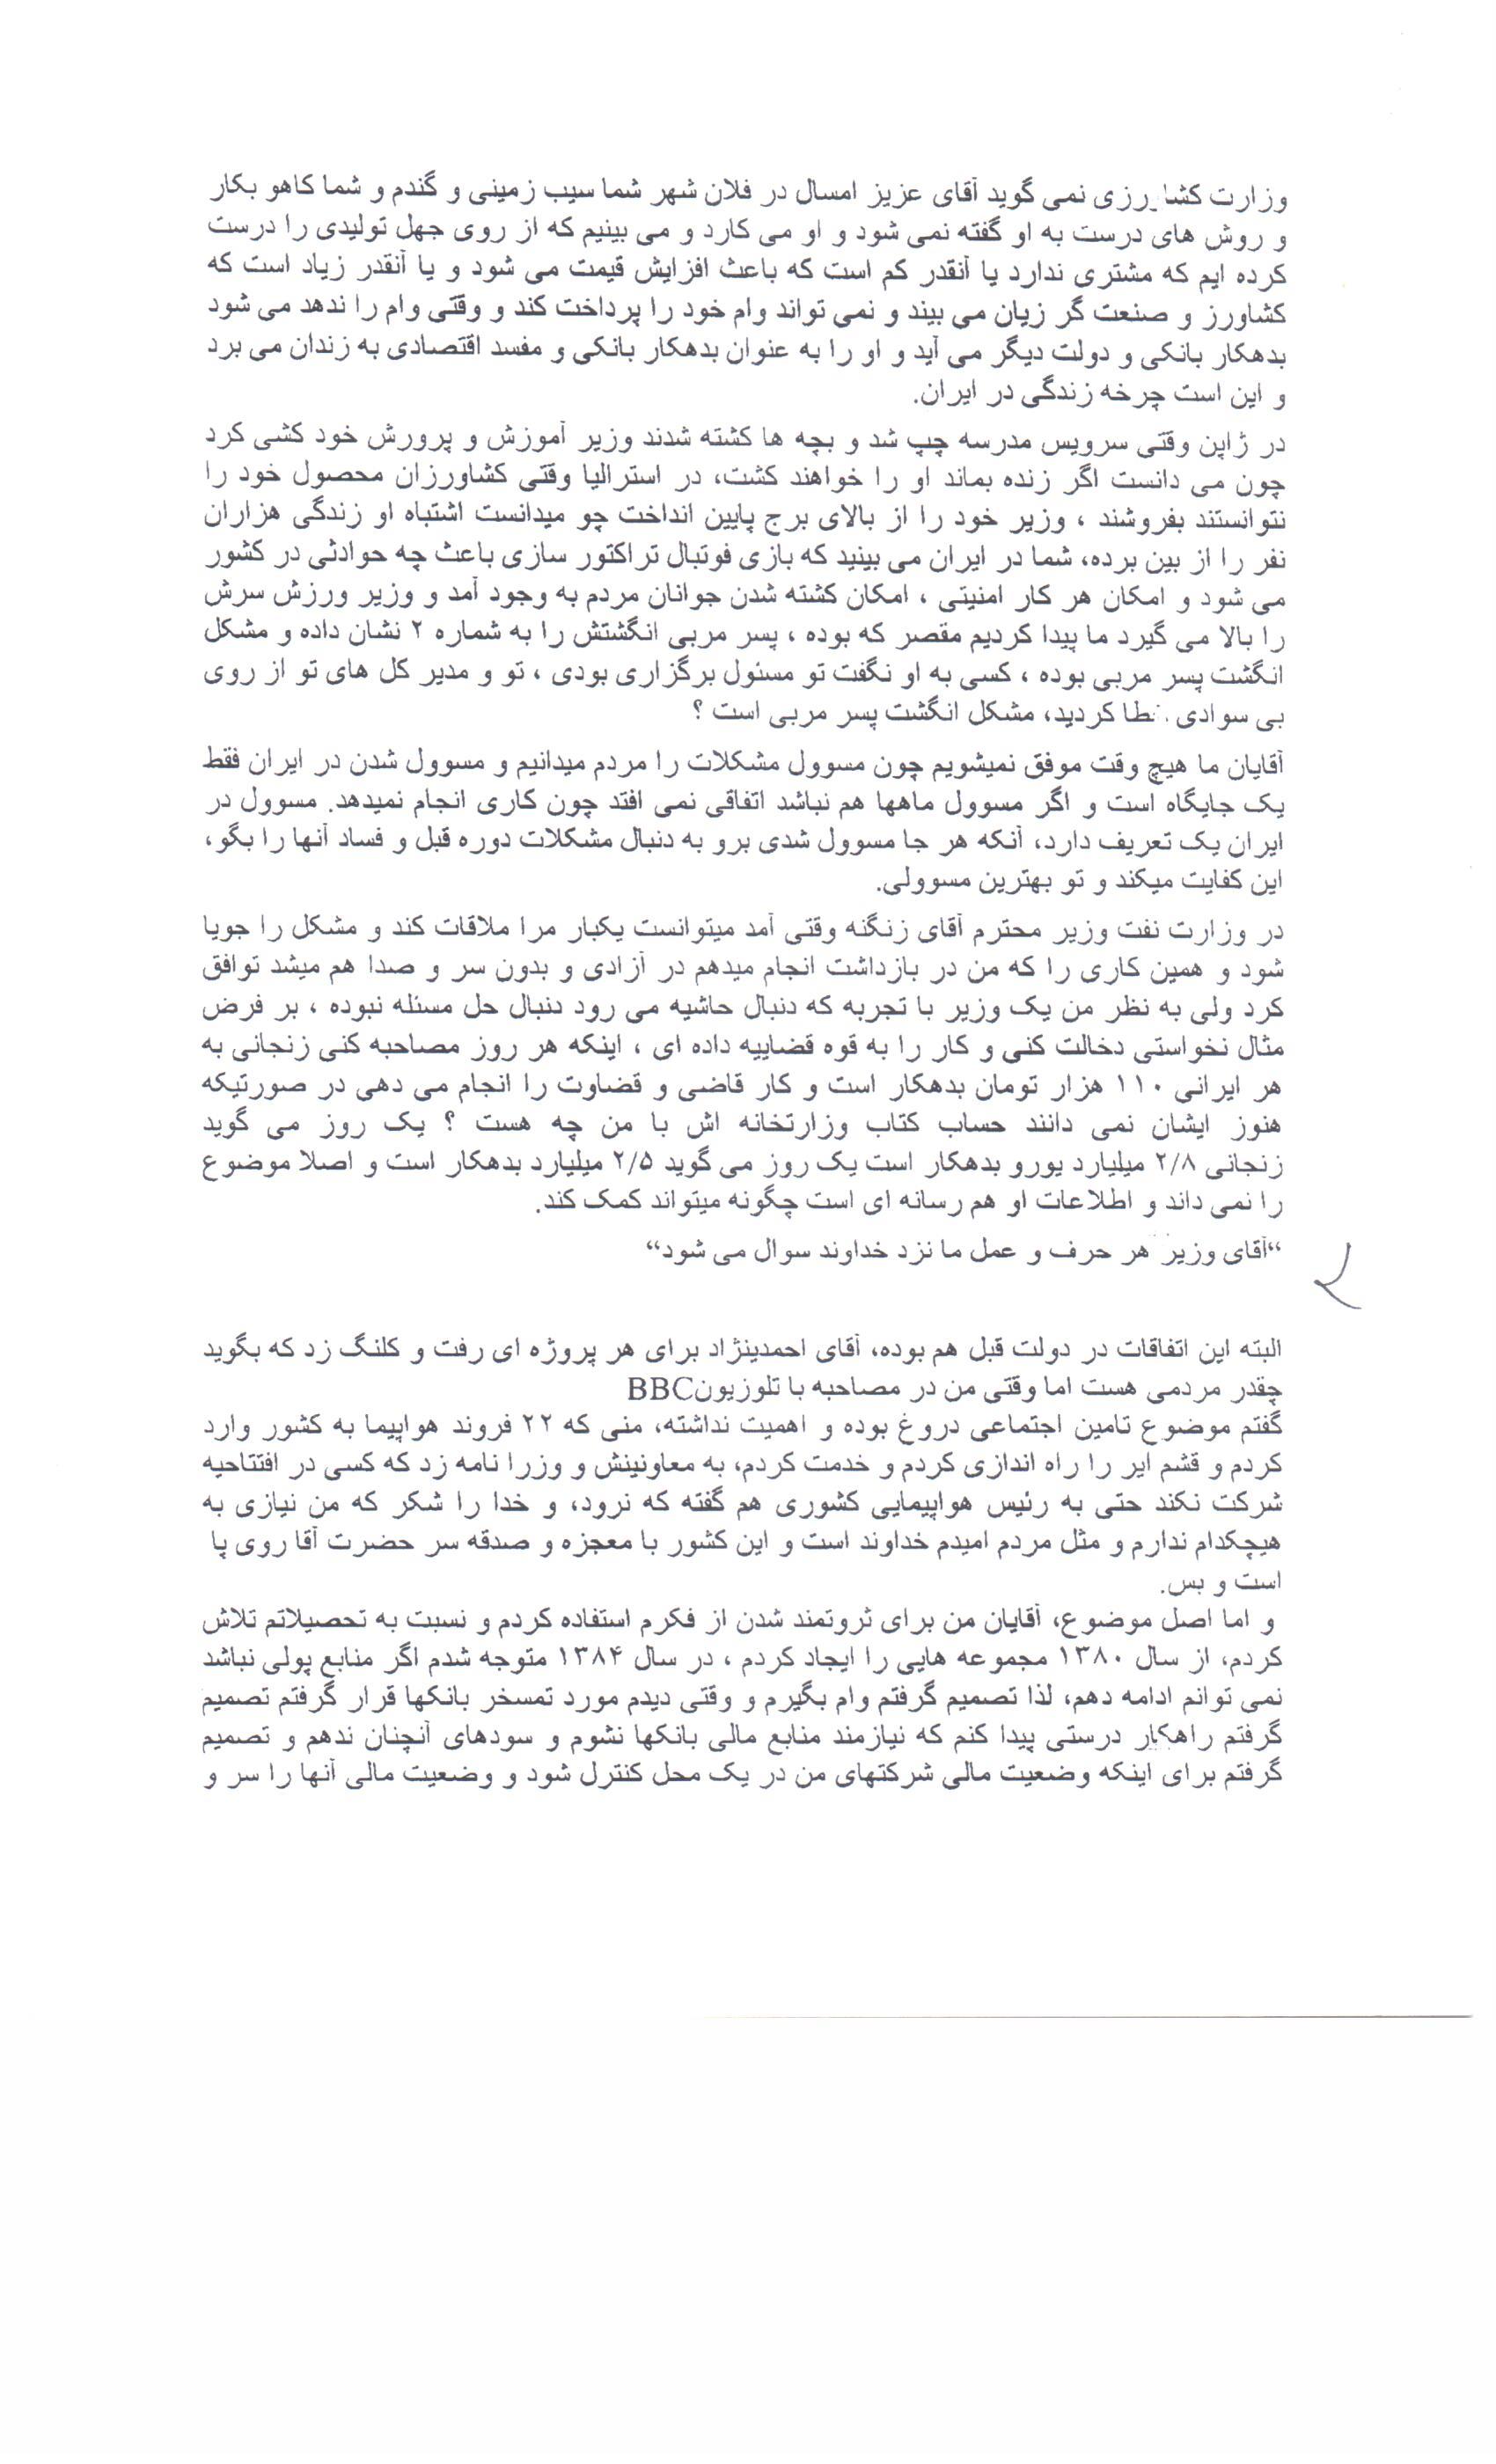 وزارت کشاورزی نمی گوید آقای عزیز امسال در فلان شهر شما سیب زمینی و گندم و شما کاهو بکار
و روش های درست به او گفته نمی شود و او می کارد و می بینیم که از روی جهل تولیدی را درست
کرده ایم که مشتری ندارد یا آنقدر کم است که باعث افزایش قیمت می شود و یا آنقدر زیاد است که
کشاورز و صنعت گر زیان می بیند و نمی تواند وام خود را پرداخت کند و وقتی وام را ندهد می شود
بدهکار بانکی و دولت دیگر می آید و او را به عنوان بدهکار بانکی و مفسد اقتصادی به زندان می برد
و این است چرخه زندگی در ایران.
در ژاپن وقتی سرویس مدرسه چپ شد و بچه ها کشته شدند وزیر آموزش و پرورش خود کشی کرد
چون می دانست اگر زنده بماند او را خواهند کشت، در استرالیا وقتی کشاورزان محصول خود را
نتوانستند بفروشند ، وزیر خود را از بالای برج پایین انداخت چو میدانست اشتباه او زندگی هزاران
نفر را از بین برده، شما در ایران می بینید که بازی فوتبال تراکتور سازی باعث چه حوادثی در کشور
می شود و امکان هر کار امنیتی ، امکان کشته شدن جوانان مردم به وجود آمد و وزیر ورزش سرش
را بالا می گیرد ما پیدا کردیم مقصر که بوده ، پسر مربی انگشتش را به شماره ۲ نشان داده و مشکل
انگشت پسر مربی بوده ، کسی به او نگفت تو مسئول برگزاری بودی ، تو و مدیر کل های تو از روی
بی سوادی خطا کردید، مشکل انگشت پسر مربی است ؟
آقایان ما هیچ وقت موفق نمیشویم چون مسوول مشکلات را مردم میدانیم و مسوول شدن در ایران فقط
یک جایگاه است و اگر مسوول ماهها هم نباشد اتفاقی نمی افتد چون کاری انجام نمیدهد. مسوول در
ایران یک تعریف دارد، آنکه هر جا مسوول شدی برو به دنبال مشکلات دوره قبل و فساد آنها را بگو،
این کفایت میکند و تو بهترین مسوولی.
در وزارت نفت وزیر محترم آقای زنگنه وقتی آمد میتوانست یکبار مرا ملاقات کند و مشکل را جویا
شود و همین کاری را که من در بازداشت انجام میدهم در آزادی و بدون سر و صدا هم میشد توافق
کرد ولی به نظر من یک وزیر با تجربه که دنبال حاشیه می رود دنبال حل مسئله نبوده ، بر فرض
مثال نخواستی دخالت کنی و کار را به قوه قضاییه داده ای ، اینکه هر روز مصاحبه کنی زنجانی به
هر ایرانی ۱۱۰ هزار تومان بدهکار است و کار قاضی و قضاوت را انجام می دهی در صورتیکه
هنوز ایشان نمی دانند حساب کتاب وزارتخانه اش با من چه هست ؟ یک روز می گوید
زنجانی ۲/۸ میلیارد یورو بدهکار است یک روز می گوید ۲/۵ میلیارد بدهکار است و اصلا موضوع
را نمی داند و اطلاعات او هم رسانه ای است چگونه میتواند کمک کند.
“آقای وزیر هر حرف و عمل ما نزد خداوند سوال می شود“
البته این اتفاقات در دولت قبل هم بوده، آقای احمدینژاد برای هر پروژه ای رفت و کلنگ زد که بگوید
چقدر مردمی هست اما وقتی من در مصاحبه با تلوزیونBBC
گفتم موضوع تامین اجتماعی دروغ بوده و اهمیت نداشته، منی که ۲۲ فروند هواپیما به کشور وارد
کردم و قشم ایر را راه اندازی کردم و خدمت کردم، به معاونینش و وزرا نامه زد که کسی در افتتاحیه
شرکت نکند حتی به رئیس هواپیمایی کشوری هم گفته که نرود، و خدا را شکر که من نیازی به
هیچکدام ندارم و مثل مردم امیدم خداوند است و این کشور با معجزه و صدقه سر حضرت آقا روی پا
است و بس.
و اما اصل موضوع، آقایان من برای ثروتمند شدن از فکرم استفاده کردم و نسبت به تحصیلاتم تلاش
کردم، از سال ۱۳۸۰ مجموعه هایی را ایجاد کردم ، در سال ۱۳۸۴ متوجه شدم اگر منابع پولی نباشد
نمی توانم ادامه دهم، لذا تصمیم گرفتم وام بگیرم و وقتی دیدم مورد تمسخر بانکها قرار گرفتم تصمیم
گرفتم راهکار درستی پیدا کنم که نیازمند منابع مالی بانکها نشوم و سودهای آنچنان ندهم و تصمیم
گرفتم برای اینکه وضعیت مالی شرکتهای من در یک محل کنترل شود و وضعیت مالی آنها را سر و